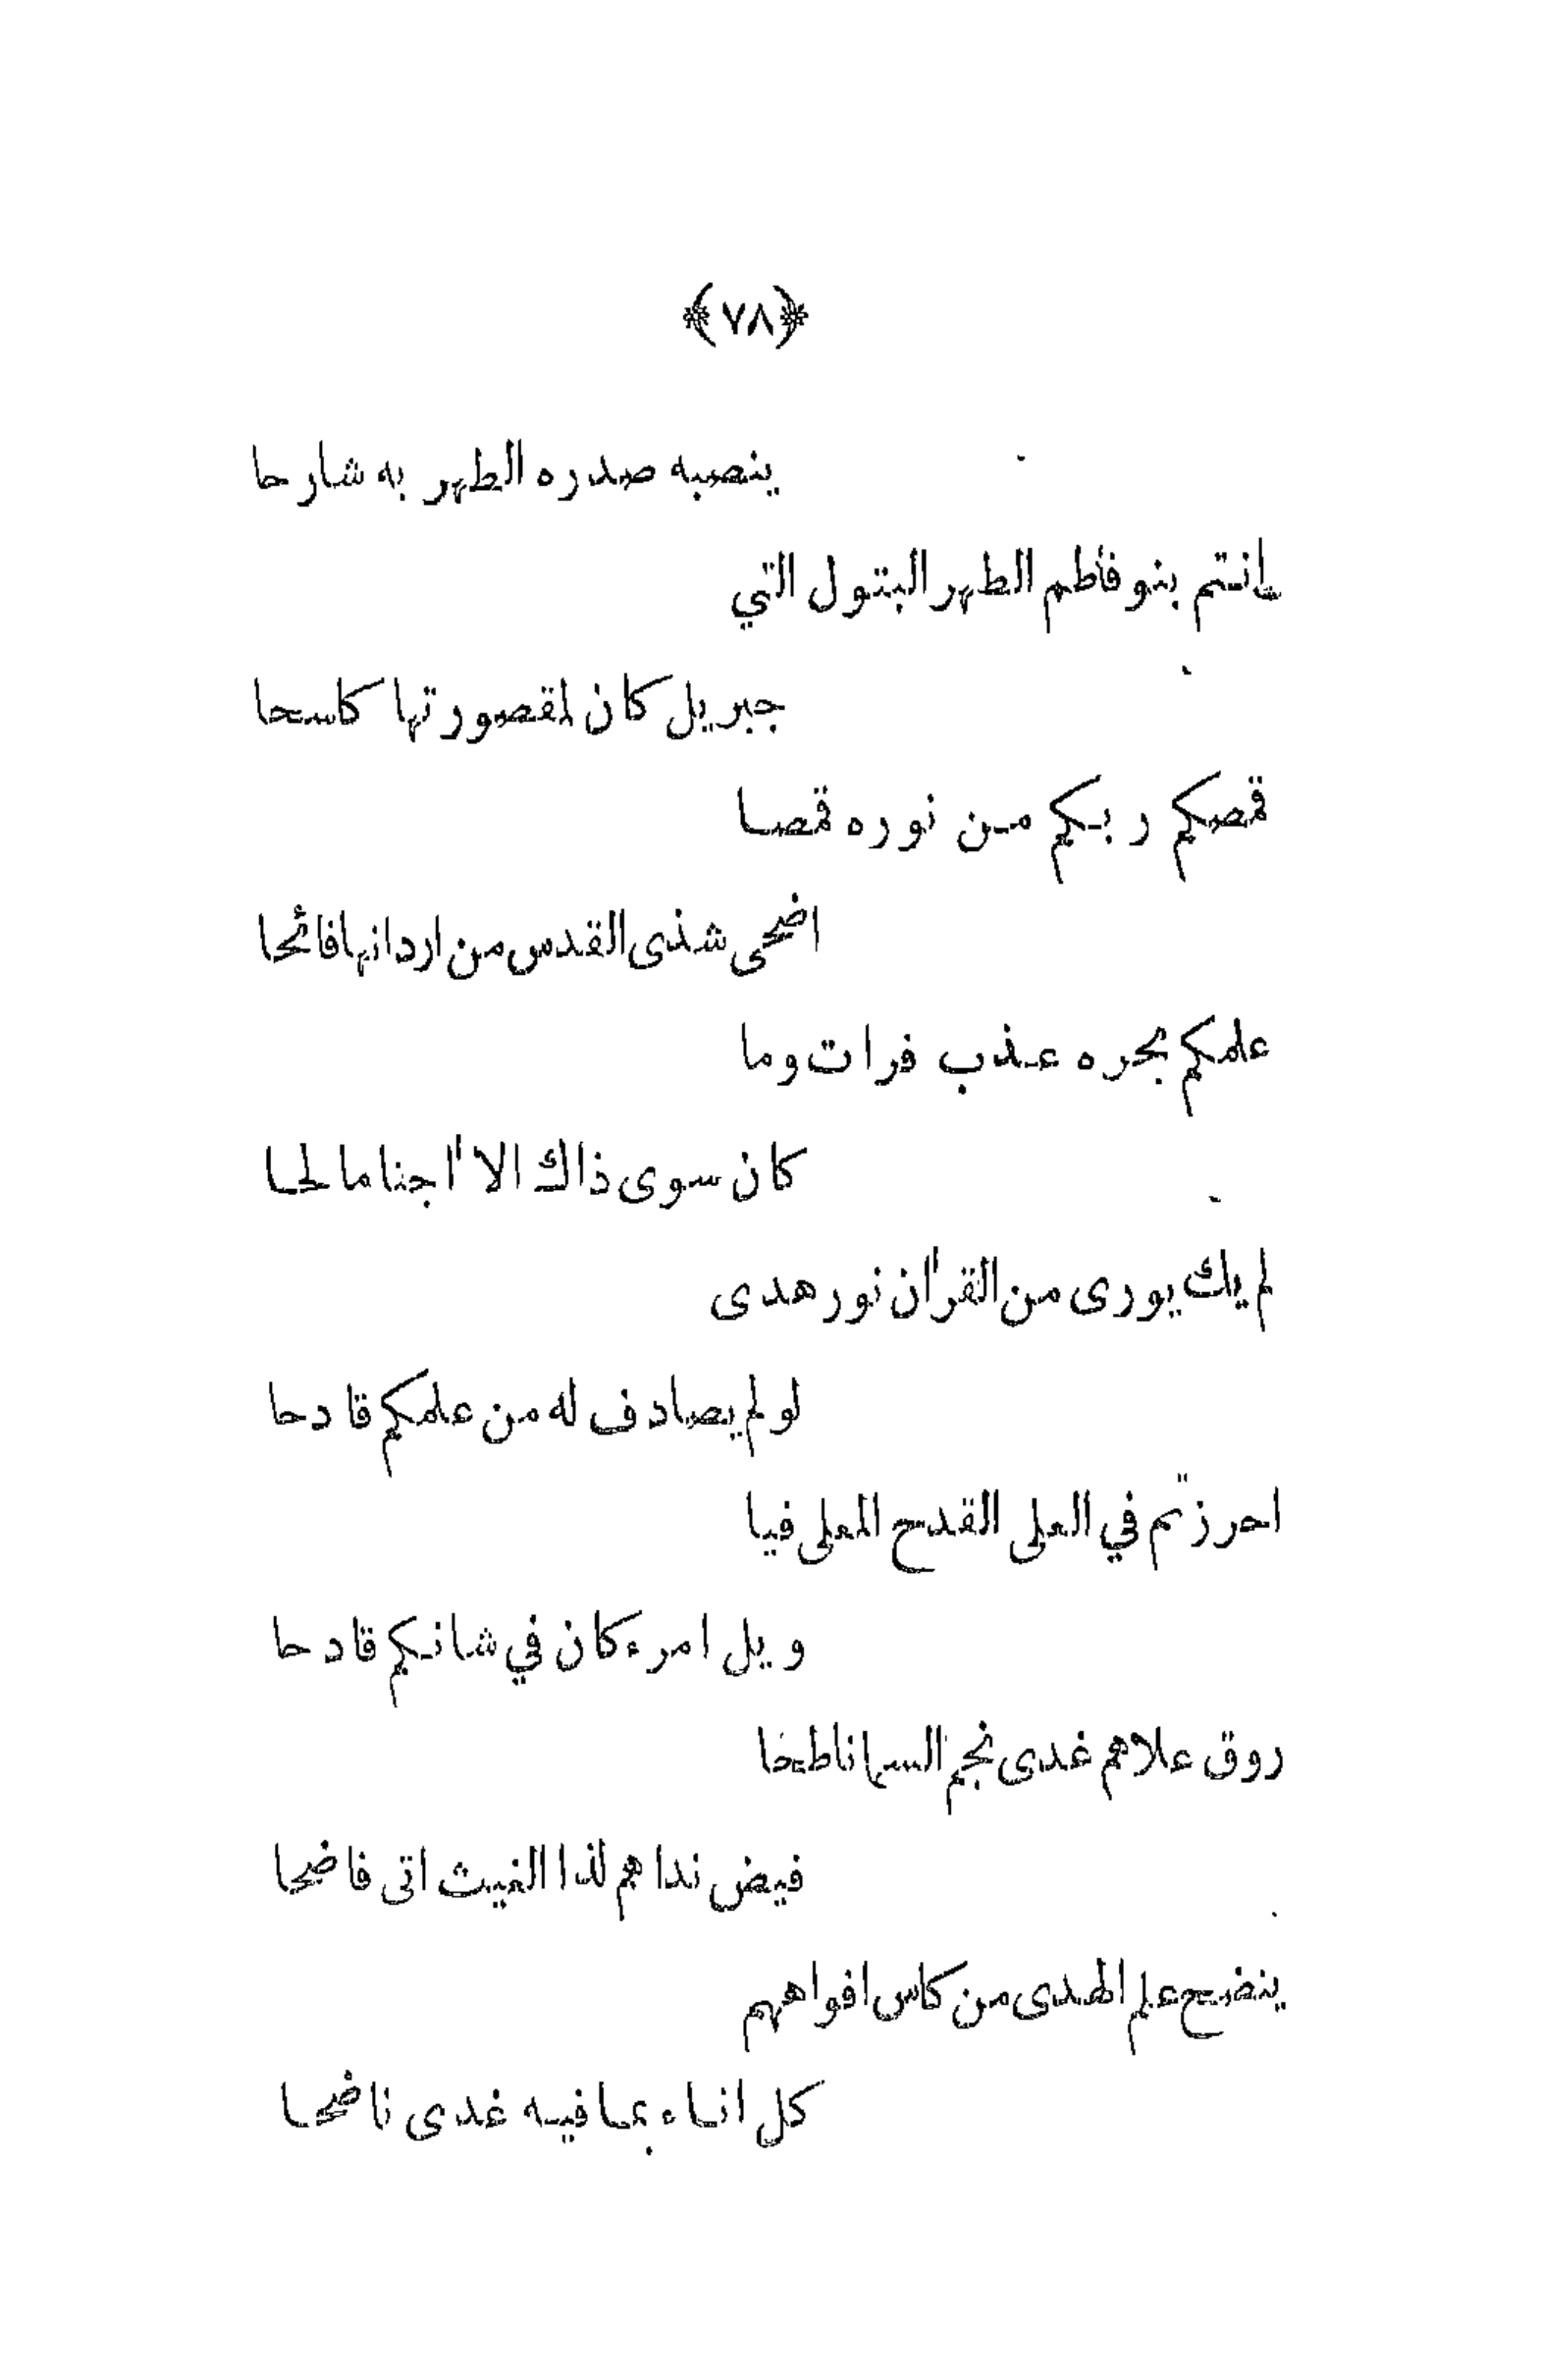 ﴿٧٨﴾
ينصبه صدره الطهر به شارحا
انتم بنو فاطم الطهر البتول التي
جبريل كان لمقصورتها كاسحا
قمصكم ربكم من نوره قمصا
اضحى شذى القدس من اردانها فائحا
علمكم بحره عذب فرات وما
كان سوى ذاك الا آجنا مالحا
لم يك يورى من القرآن نور هدى
لو لم يصادف له من علمكم قادحا
احرزتم في العلى القدح المعلى فيا
ويل امرء كان في شانكم قادحا
روق علاهم غدى نجم السما ناطحا
فيض نداهم لذا الغيث اتى فاضحا
ينضح علم الهدى من كاس افواههم
كل اناء بما فيه غدى ناضحا